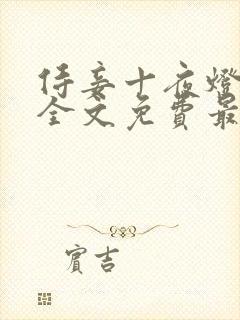 侍妾十夜燈
全文免費最
賓吉